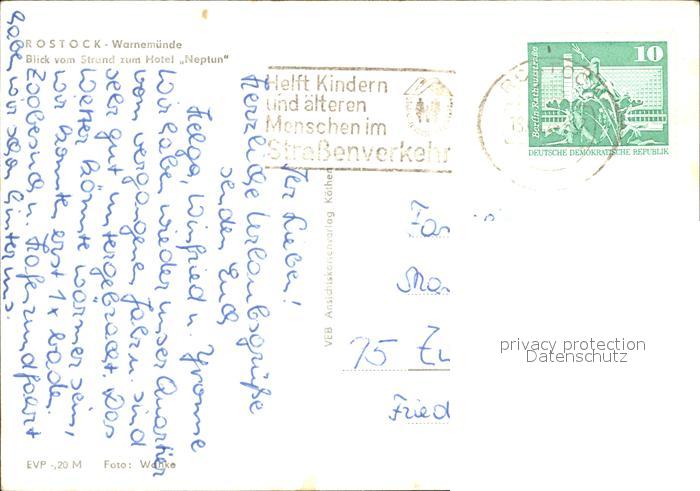 ROSTOCK - Warnemünde
Blick vom Strand zum Hotel „Neptun"
Helft Kindern
und älteren
Menschen im
Straßenverkehr
ROSTOCK
10
Berlin, Rathausstraße
DEUTSCHE DEMOKRATISCHE REPUBLIK
Ihr Lieben!
Herzliche Urlaubsgrüße
senden Euch
Helga, Winfried u. Yvonne
Wir haben wieder unser Quartier
vom vergangenen Jahr u. sind
sehr gut untergebracht. Das
Wetter könnte wärmer sein,
wir konnten erst 1x baden.
Zoobesuch u. Hafenrundfahrt
haben wir schon hinter uns.
VEB Ansichtskartenverlag Köthen
Fa
Ma
75
Fried
privacy protection
Datenschutz
EVP -,20 M Foto: Wahke